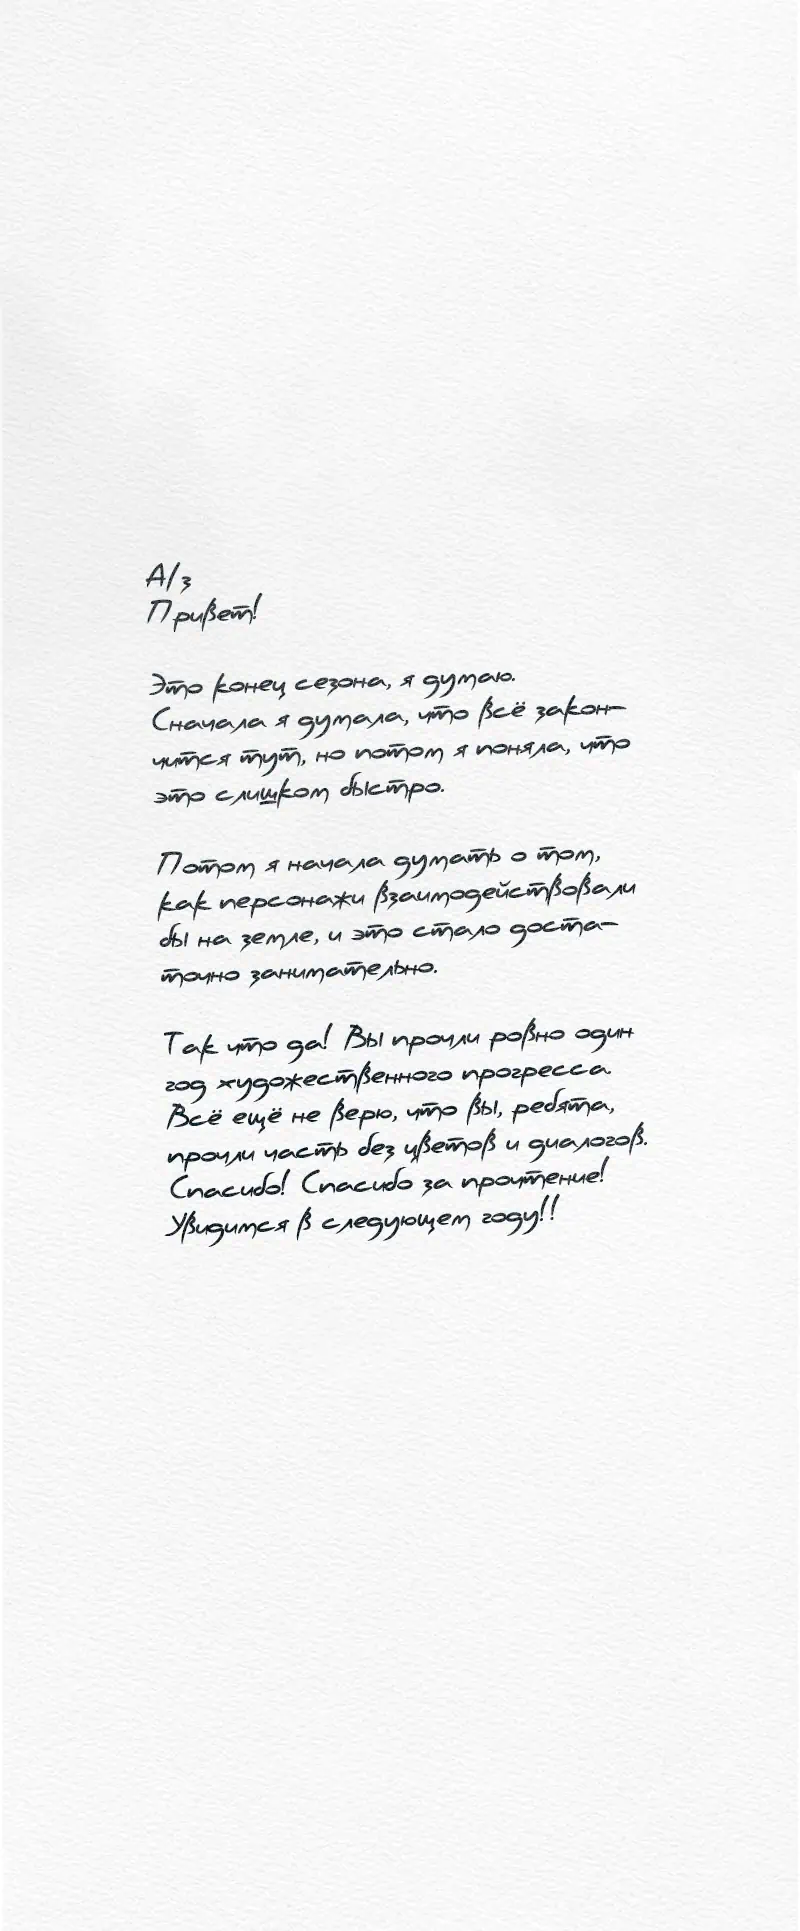 А/з
Привет!
Это конец сезона, я думаю.
Сначала я думала, что всё закон-
чится тут, но потом я поняла, что
это слишком быстро.
Потом я начала думать о том,
как персонажи взаимодействовали
бы на земле, и это стало доста-
точно занимательно.
Так что да! Вы прочли ровно один
год художественного прогресса.
Всё ещё не верю, что вы, ребята,
прочли часть без цветов и диалогов.
Спасибо! Спасибо за прочтение!
Увидимся в следующем году!!